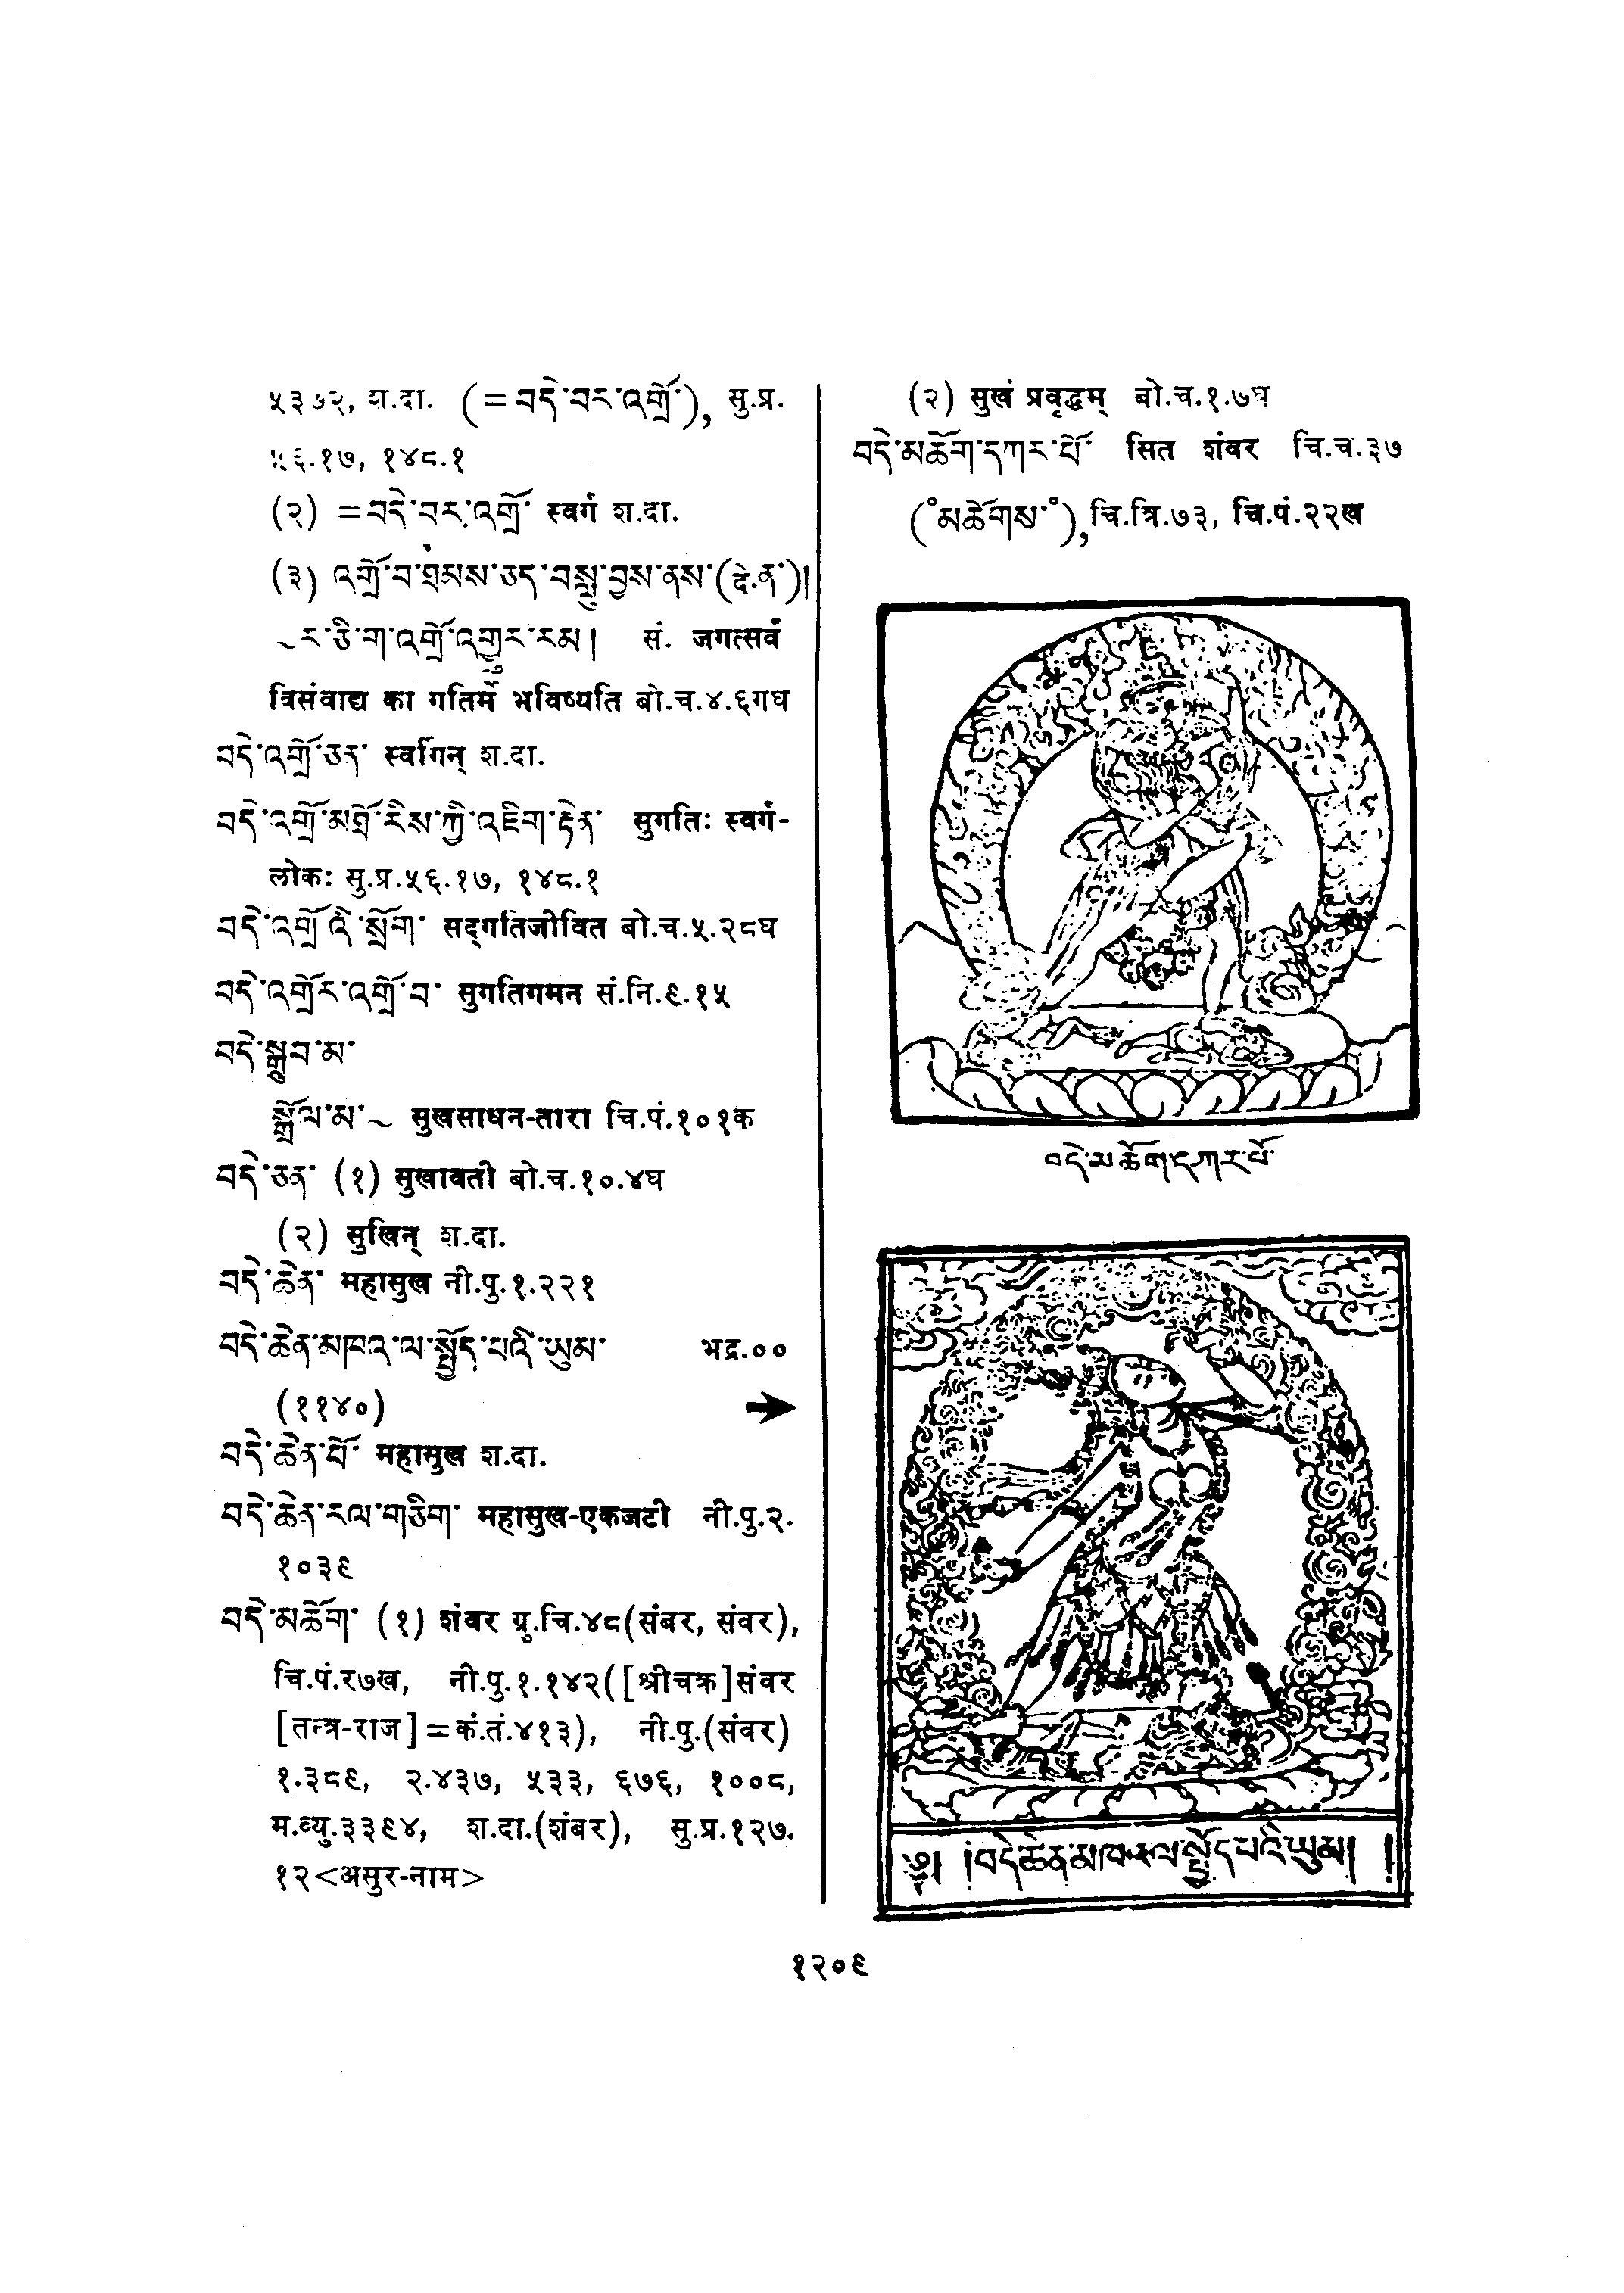 ५३७२, श.दा. (=བདེ་བར་འགྲོ་), सु.प्र.
५६.१७, १४८.१
(२) =བདེ་བར་འགྲོ་ स्वर्ग श.दा.
(३) འགྲོ་བ་ཐམས་ཅད་བསླུ་བྱས་ནས་(द्वे.ན་)།
~ར་ཅི་ག་འགྲོ་འགྱུར་རམ། सं. जगत्सर्वं
विसंवाद्य का गतिर्मे भविष्यति बो.च.४.६गघ
བདེ་འགྲོ་ཅན་ स्वर्गिन् श.दा.
བདེ་འགྲོ་མཐོ་རིས་ཀྱི་འཇིག་རྟེན་ सुगतिः स्वर्ग-
लोकः सु.प्र.५६.१७, १४८.१
བདེ་འགྲོ་འི་སྲོག་ सद्गतिजीवित बो.च.५.२८घ
བདེ་འགྲོར་འགྲོ་བ་ सुगतिगमन सं.नि.९.१५
བདེ་སྒྲུབ་མ་
སྒྲོལ་མ་~ सुखसाधन-तारा चि.पं.१०१क
བདེ་ཅན་ (१) सुखावती बो.च.१०.४घ
(२) सुखिन् श.दा.
བདེ་ཆེན་ महासुख नी.पु.१.२२१
བདེ་ཆེན་མཁའ་ལ་སྤྱོད་པའི་ཡུམ་ भद्र.००
(११४०) ➔
བདེ་ཆེན་པོ་ महासुख श.दा.
བདེ་ཆེན་རལ་གཅིག་ महासुख-एकजटी नी.पु.२.
१०३९
བདེ་མཆོག་ (१) शंवर ग्रु.चि.४८(संबर, संवर),
चि.पं.र७ख, नी.पु.१.१४२([श्रीचक्र]संवर
[तन्त्र-राज]=कं.तं.४१३), नी.पु.(संवर)
१.३८९, २.४३७, ५३३, ६७६, १००८,
म.व्यु.३३९४, श.दा.(शंबर), सु.प्र.१२७.
१२<असुर-नाम>
(२) सुखं प्रवृद्धम् बो.च.१.७घ
བདེ་མཆོག་དཀར་པོ་ सित शंवर चि.च.३७
(°མཆོགས་°), चि.त्रि.७३, चि.पं.२२ख
བདེ་མཆོག་དཀར་པོ་
༄། །བདེ་ཆེན་མཁའ་ལ་སྤྱོད་པའི་ཡུམ། །
१२०९